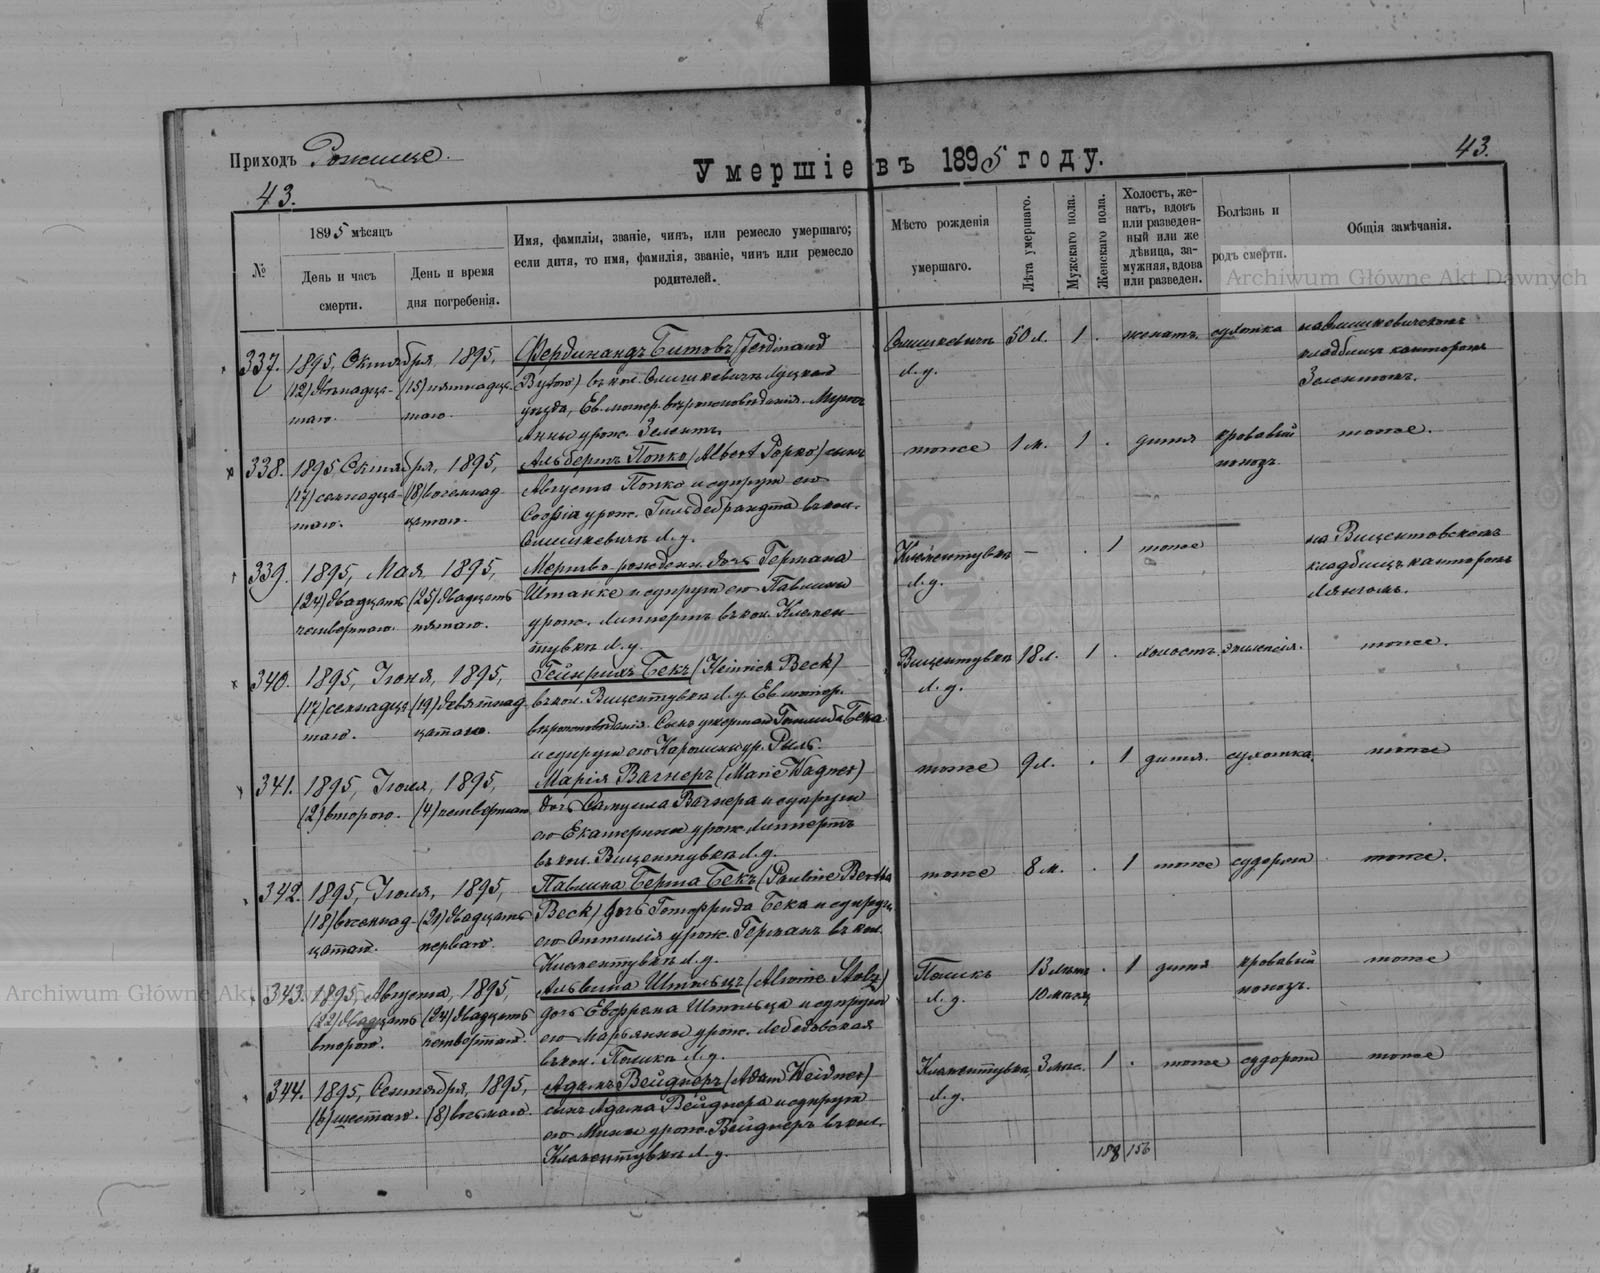 Приходъ Рожище.
Умершіе въ 1895 году.
43.
43.
№
1895 мѣсяцъ
День и часъ
смерти.
День и время
дня погребенія.
Имя, фамилія, званіе, чинъ, или ремесло умершаго;
если дитя, то имя, фамилія, званіе, чинъ или ремесло
родителей.
Мѣсто рожденія
умершаго.
Лѣта умершаго.
Мужскаго пола.
Женскаго пола.
Холостъ, же-
натъ, вдовъ
или разведен-
ный или же
дѣвица, за-
мужняя, вдова
или разведен.
Болѣзнь и
родъ смерти.
Общія замѣчанія.
Archiwum Główne Akt Dawnych
337. 1895, Октября, 1895, Фердинандъ Битовъ (Ferdinand
(12) двѣнадца- (15) пятнадца-
таго. таго.
въ кол. Луцкаго
уѣзда, Ев. лютер. вѣроисповѣданія. Мужъ
Анны урож. Зелентъ
Л. у.
50 л. 1 . женатъ. сухотка
кладбищѣ канторомъ
338. 1895 Октября, 1895, Альбертъ Попко (Albert Popko) сынъ
(17) семнадца- (18) восемнад-
таго. цатаго.
Августа Попко и супруги его
Софіи урож. Гильдебрандта въ кол.
Л. у.
тоже 1 м. 1 . дитя кровавый
поносъ.
тоже.
339. 1895, Мая, 1895, Мертво-рожден. дочь Германа
(24) двадцать (25) двадцать
четвертаго. пятаго.
Штанке и супруги его Павлины
урож. Липпертъ въ кол. Клемен
тувкѣ Л. у.
Клементувкѣ
Л. у.
— . 1 тоже
на Вицентовскомъ
кладбищѣ канторомъ
340. 1895, Іюня, 1895, Гейнрихъ Бекъ (Heinrich Beck)
(17) семнадца (19) девятнад
таго. цатаго.
въ кол. Вицентувкѣ Л. у. Ев. лютер.
вѣроисповѣданія. Сынъ умершаго Готлиба Бека
и супруги его Каролины ур. Рыль.
Вицентувкѣ
Л. у.
18 л. 1 . холостъ. эпилепсія. тоже.
341. 1895, Іюля, 1895, Марія Вагнеръ (Marie Wagner)
(2) второго. (4) четвертаго
дочь Самуила Вагнера и супруги
его Екатерины урож. Липпертъ
въ кол. Вицентувкѣ Л. у.
тоже 9 л. . 1 дитя. сухотка. тоже
342. 1895, Іюля, 1895, Павлина Берта Бекъ (Pauline Bertha
(18) восемнад- (21) двадцать
цатаго. перваго.
Beck) дочь Готфрида Бека и супруги
его Оттилія урож. Германъ въ кол.
Клементувкѣ Л. у.
тоже 8 м. . 1 тоже судороги тоже.
Archiwum Główne Akt Dawnych
343. 1895, Августа, 1895, Альвина Штольцъ (Alwine Stolz)
(22) двадцать (24) двадцать
второго. четвертаго.
дочь Ефрема Штольца и супруги
его Марьянны урож. Лебедовская
въ кол. Л. у.
Л. у.
13 лѣтъ
10 мѣсяц
. 1 дитя кровавый
поносъ.
тоже
344. 1895, Сентября, 1895, Адамъ Вейднеръ (Adam Weidner)
(6) шестаго. (8) восьмаго.
сынъ Адама Вейднера и супруги
его Мины урож. Вейднеръ въ кол.
Клементувкѣ Л. у.
Клементувкѣ
Л. у.
3 мѣс. 1 . тоже судороги тоже
188 156